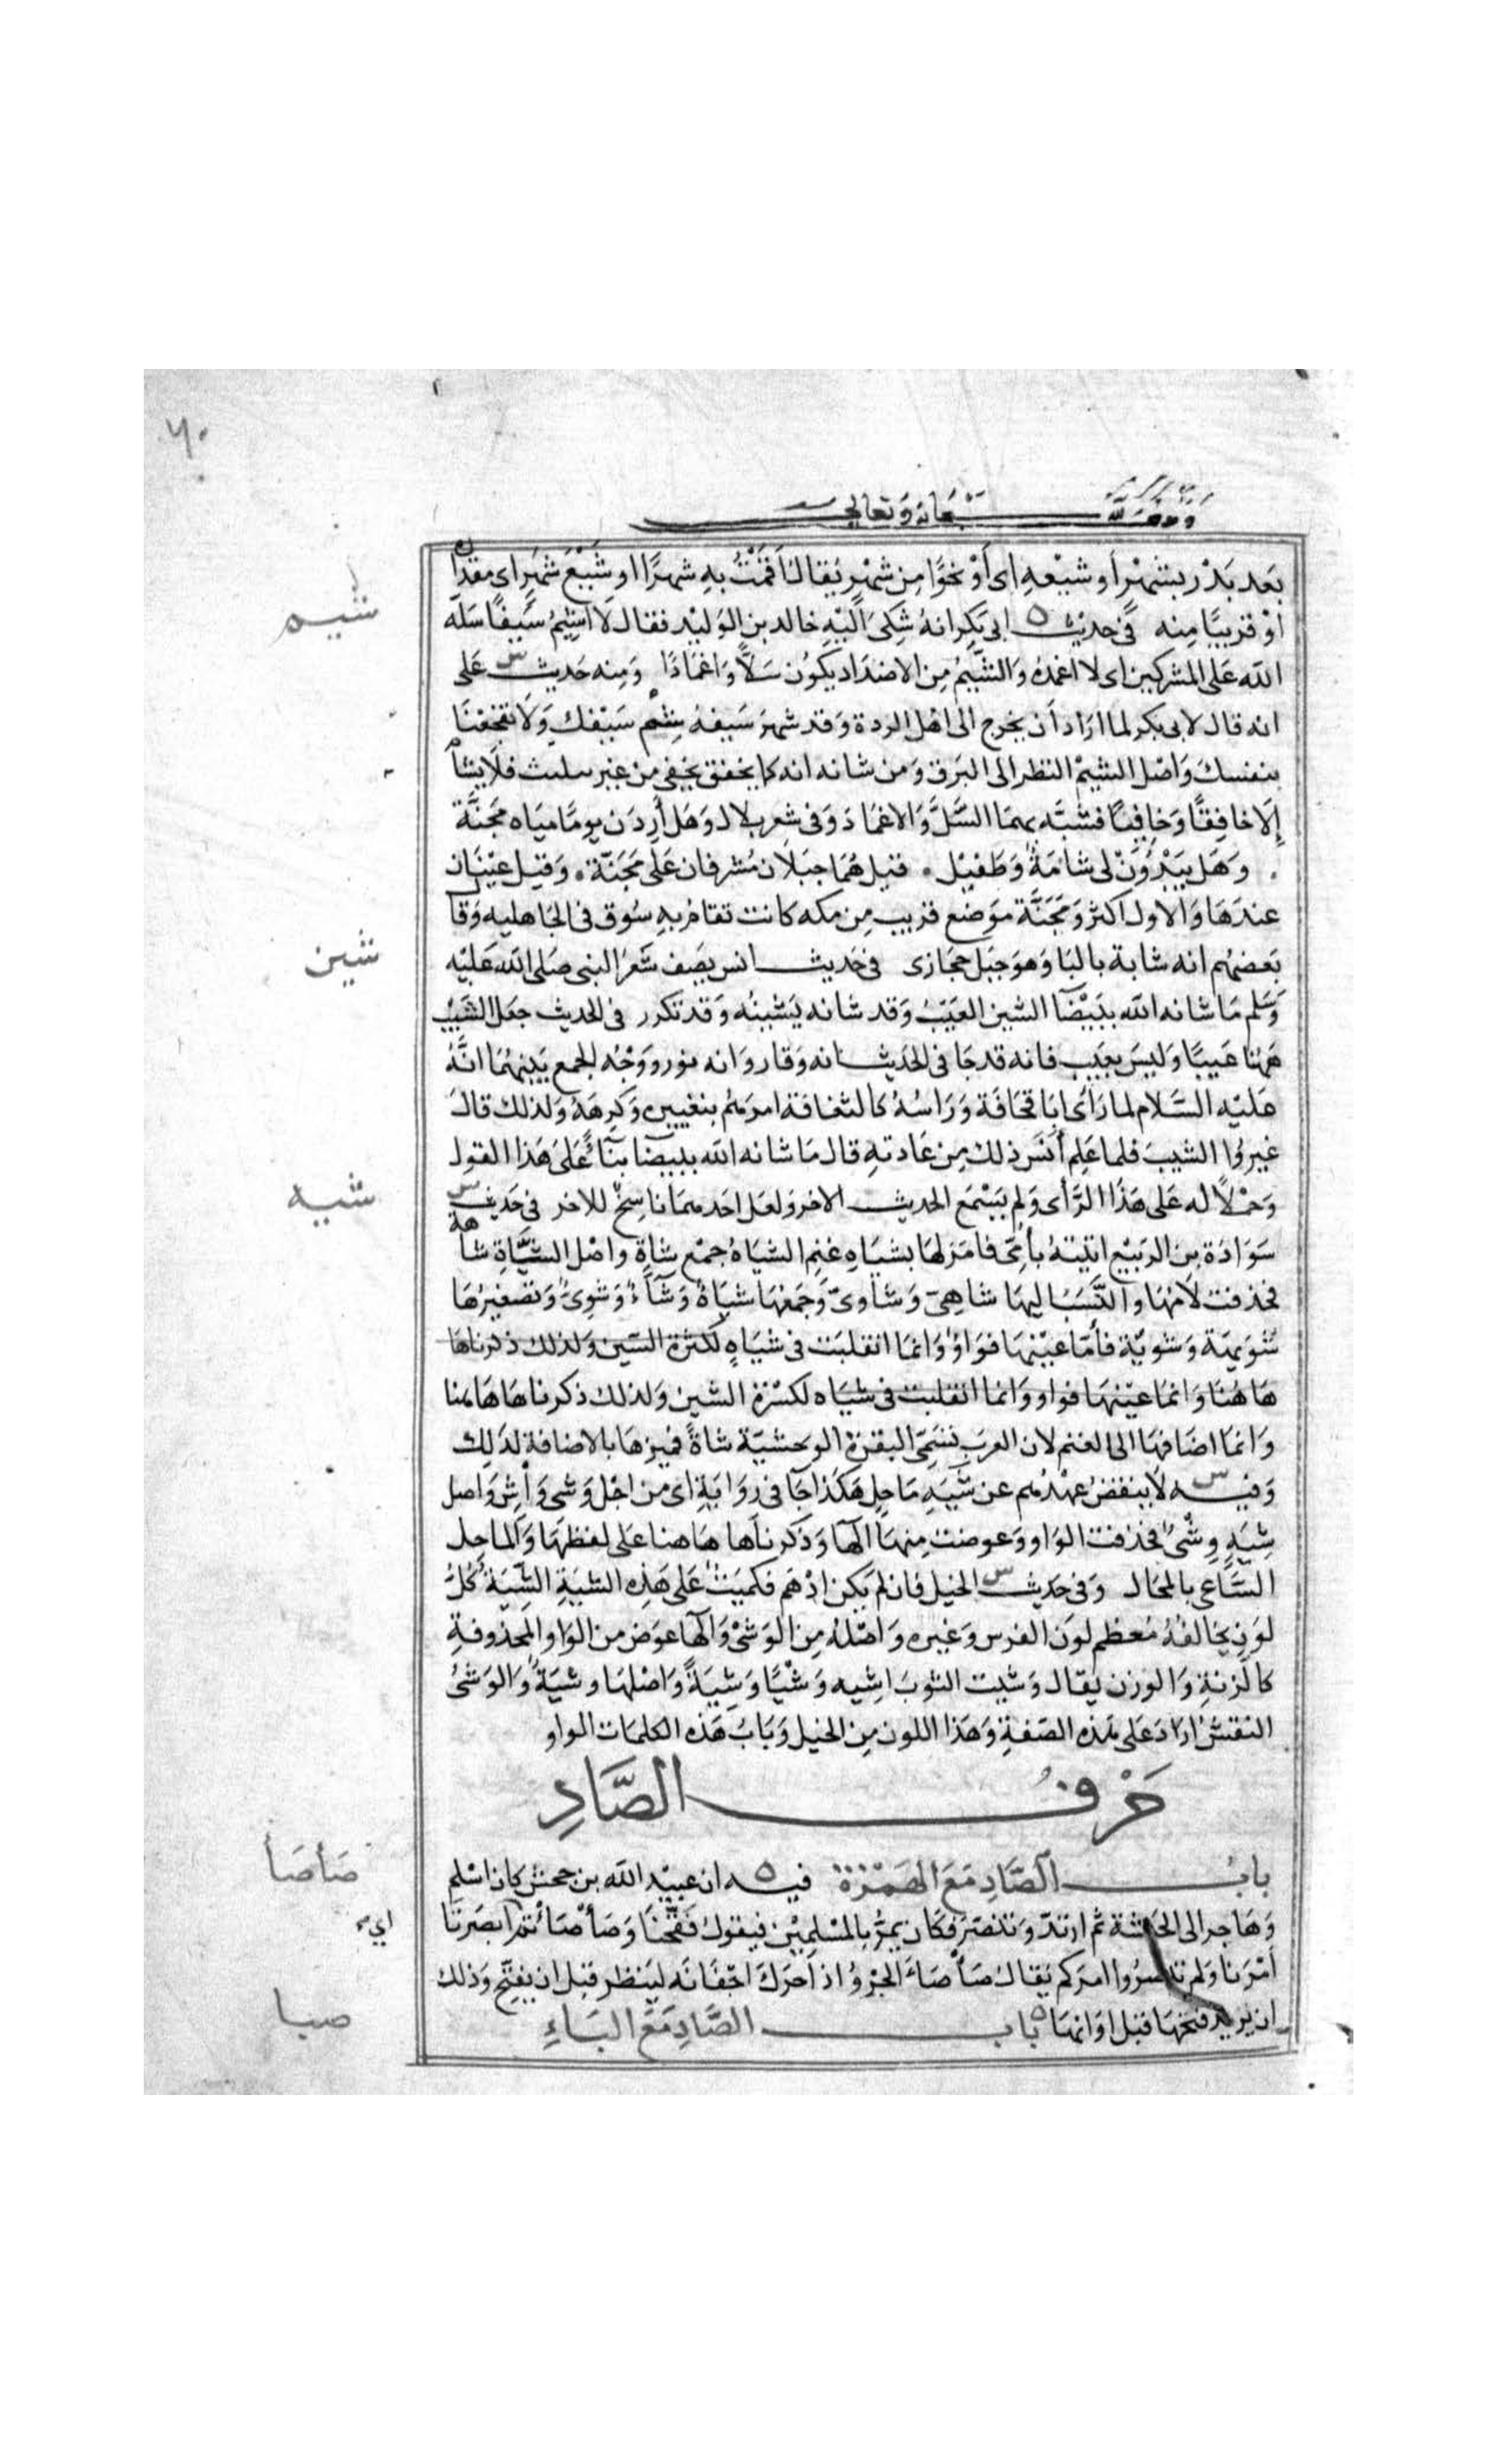 ٦٠
وقف لله سبحانه وتعالى
بَعد بَدْر بشهْر أو شيْعِهِ اى أَوْ نحوًا مِن شَهْرٍ يُقال أقَمْتُ به شهرًا او شَيْعَ شَهْر اى مقدارَه
شيم
أوْ قريبًا منه في حديث ابى بكر انهُ شُكِىَ الَيْهِ خالد بن الوَليْد فقال لا اشِيْمُ سَيفًا سَلَّه
الله عَلى المشركين اى لا اغمدُه وَالشَّيْمُ مِن الاضدَاد يكوُن سَلاًّ وَاغمَادًا وَمِنه حَديث عَلى
انه قال لابى بكر لما ارَاد أن يخرج الى اهْل الردة وَقد شهرَ سَيفهُ شِمْ سَيْفك وَلا تفجَعْنَا
بنفسكَ وَاصْل الشيمْ النظر الى البَرق وَمن شانه انه كما يخفق يخفى من غير تلبث فلا يشام
إلا خَافِقًا وَخافيًا فشبّه بهمَا السَّلَّ وَالاغمَادَ وَفى شعر بلال وَهَل أرِدَن يومًا مياه مَجَنَّة
وَهَل يَبْدُوَنْ لى شامَةٌ وَطفيْل . قيل هُمَا جبَلان مُشرفان عَلى مَجَنّة . وَقيل عَيْنَان
عندَهَا وَالاول اكثر وَمَجَنَّة موَضع قريب مِن مكه كانت تقام بهِ سُوق فى الجَاهليه وَقال
شين
بَعضهُم انه شابة بالبَا وَهوَ جبَل حجَازى في حَديث انس يصَف شَعرَ النبى صَلى الله عَليْه
وَسَلم مَا شانه الله ببَيْضَآ الشين العَيَبُ وَقد شانه يَشينُه وَقد تكرر فى الحديث جعَل الشَّيْب
هَهُنا عَيبًا وَليسَ بعَيب فانه قد جَا فى الحَديث انه وَقار وَانه نور وَوَجْه الجمع بَينهُمَا انَّهُ
عَليْه السَّلام لما رَاَى ابَا قحَافَة وَرَاسُهُ كالثغامَة امرَهُم بتغييره وَكرهَهُ وَلذلك قال
غيرُوا الشيبَ فلما عَلِم أنَسَ ذلك مِن عَادته قال مَا شانه الله ببيضَا بنآءً عَلى هَذا القول
شيه
وَحَمْلاً له عَلى هَذَا الرَّأى وَلم يَسْمَع الحديث الاخر وَلعَل احَدهمَا ناسِخٌ للاخر فى حَديث
سَوَادَة بن الرَبيْع اتيْتهُ بأمّى فامَرَ لهَا بشيَاهِ غنِم الشيَاهُ جمْع شاةٍ وَاصْل الشَّاةِ شاهة
فحذفت لامُهَا وَالنَّسَبُ اليهَا شاهِىّ وَشاوىّ وَجَمْعُهَا شيَاهٌ وَشَآءٌ وَشَوِىٌّ وَتصْغيرُهَا
شُوَيهَة وَشويّة فأمَّا عَيْنهَا فوَاوٌ وَانمَا انقلبَت فى شيَاهٍ لكسْرة الشين وَلذلك ذكرناهَا
هَاهُنَا وَانمَا عيْنهَا فواو وَانما انقلبت فى شيَاه لكسْرة الشين وَلذلك ذكرناهَا هَاهُنا
وَانمَا اضَافهَا الى الغنم لان العرَبَ تسَمّى البقرَة الوَحشيّة شاةً فميزهَا بالاضافة لذَلك
وَفيه لا يُنقضُ عَهْدهُم عن شِيَةِ مَاحِل هَكذَا جَآ فى رِوَايَةٍ اى من اجْل وَشى وَاشٍ وَاصل
شِيَةٍ وِشْىٌ فحذفت الوَاو وَعوضت مِنهَا الهَا وَذكرناهَا هَاهنا عَلى لفظهَا وَالمَاحِل
السَّاعى بالمحَال وَفى حَديث الخيل فان لم يَكن ادْهَم فكمَيت عَلى هَذه الشيَة الشِّيَة كُلُّ
لوَنٍ يخَالفُ مُعظم لون الفرس وَغيره وَاصْلهُ مِن الوَشْى وَالهَا عوَض من الوَاو المحذوفة
كالزنة وَالوزن يُقال وَشيت الثوبَ اشِيه وَشْيًا وَشِيَةً وَاصْلهَا وِشْيَةٌ وَالوَشْىُ
النقش ارادَ عَلى هَذه الصّفةِ وَهَذا اللون مِن الخيل وَبَابُ هَذه الكلمَات الواو
حَرْفُ الصَّادِ
صَأصَأ
بابُ الصَّادِ مَعَ الهَمْزة فيه ان عبيْد الله بن جحش كان اسْلم
وَهَاجر الى الحبشة ثم ارتدّ وَتنصَّرَ فكان يمرُّ بالمسْلمِيْن فيقول فَقَّحْنَا وَصَأصَأتم ابصَرنا
اى
أمْرَنا وَلم تبصرُوا امرَكم يُقال صَأصَاَ الجرْوُ اذا حَرَكَ اجْفَانه ليَنظر قبْل ان يفَقّح وَذلك
صبا
ان يريد فتحهَا قبْل اوَانهَا باب الصَّادِ مَعَ البَاءِ